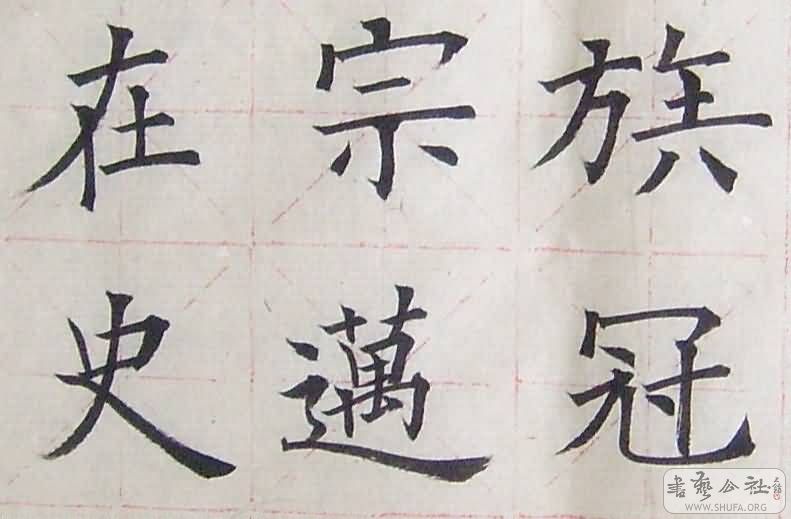 族冠
宗邁
在史
書藝公社
WWW.SHUFA.ORG